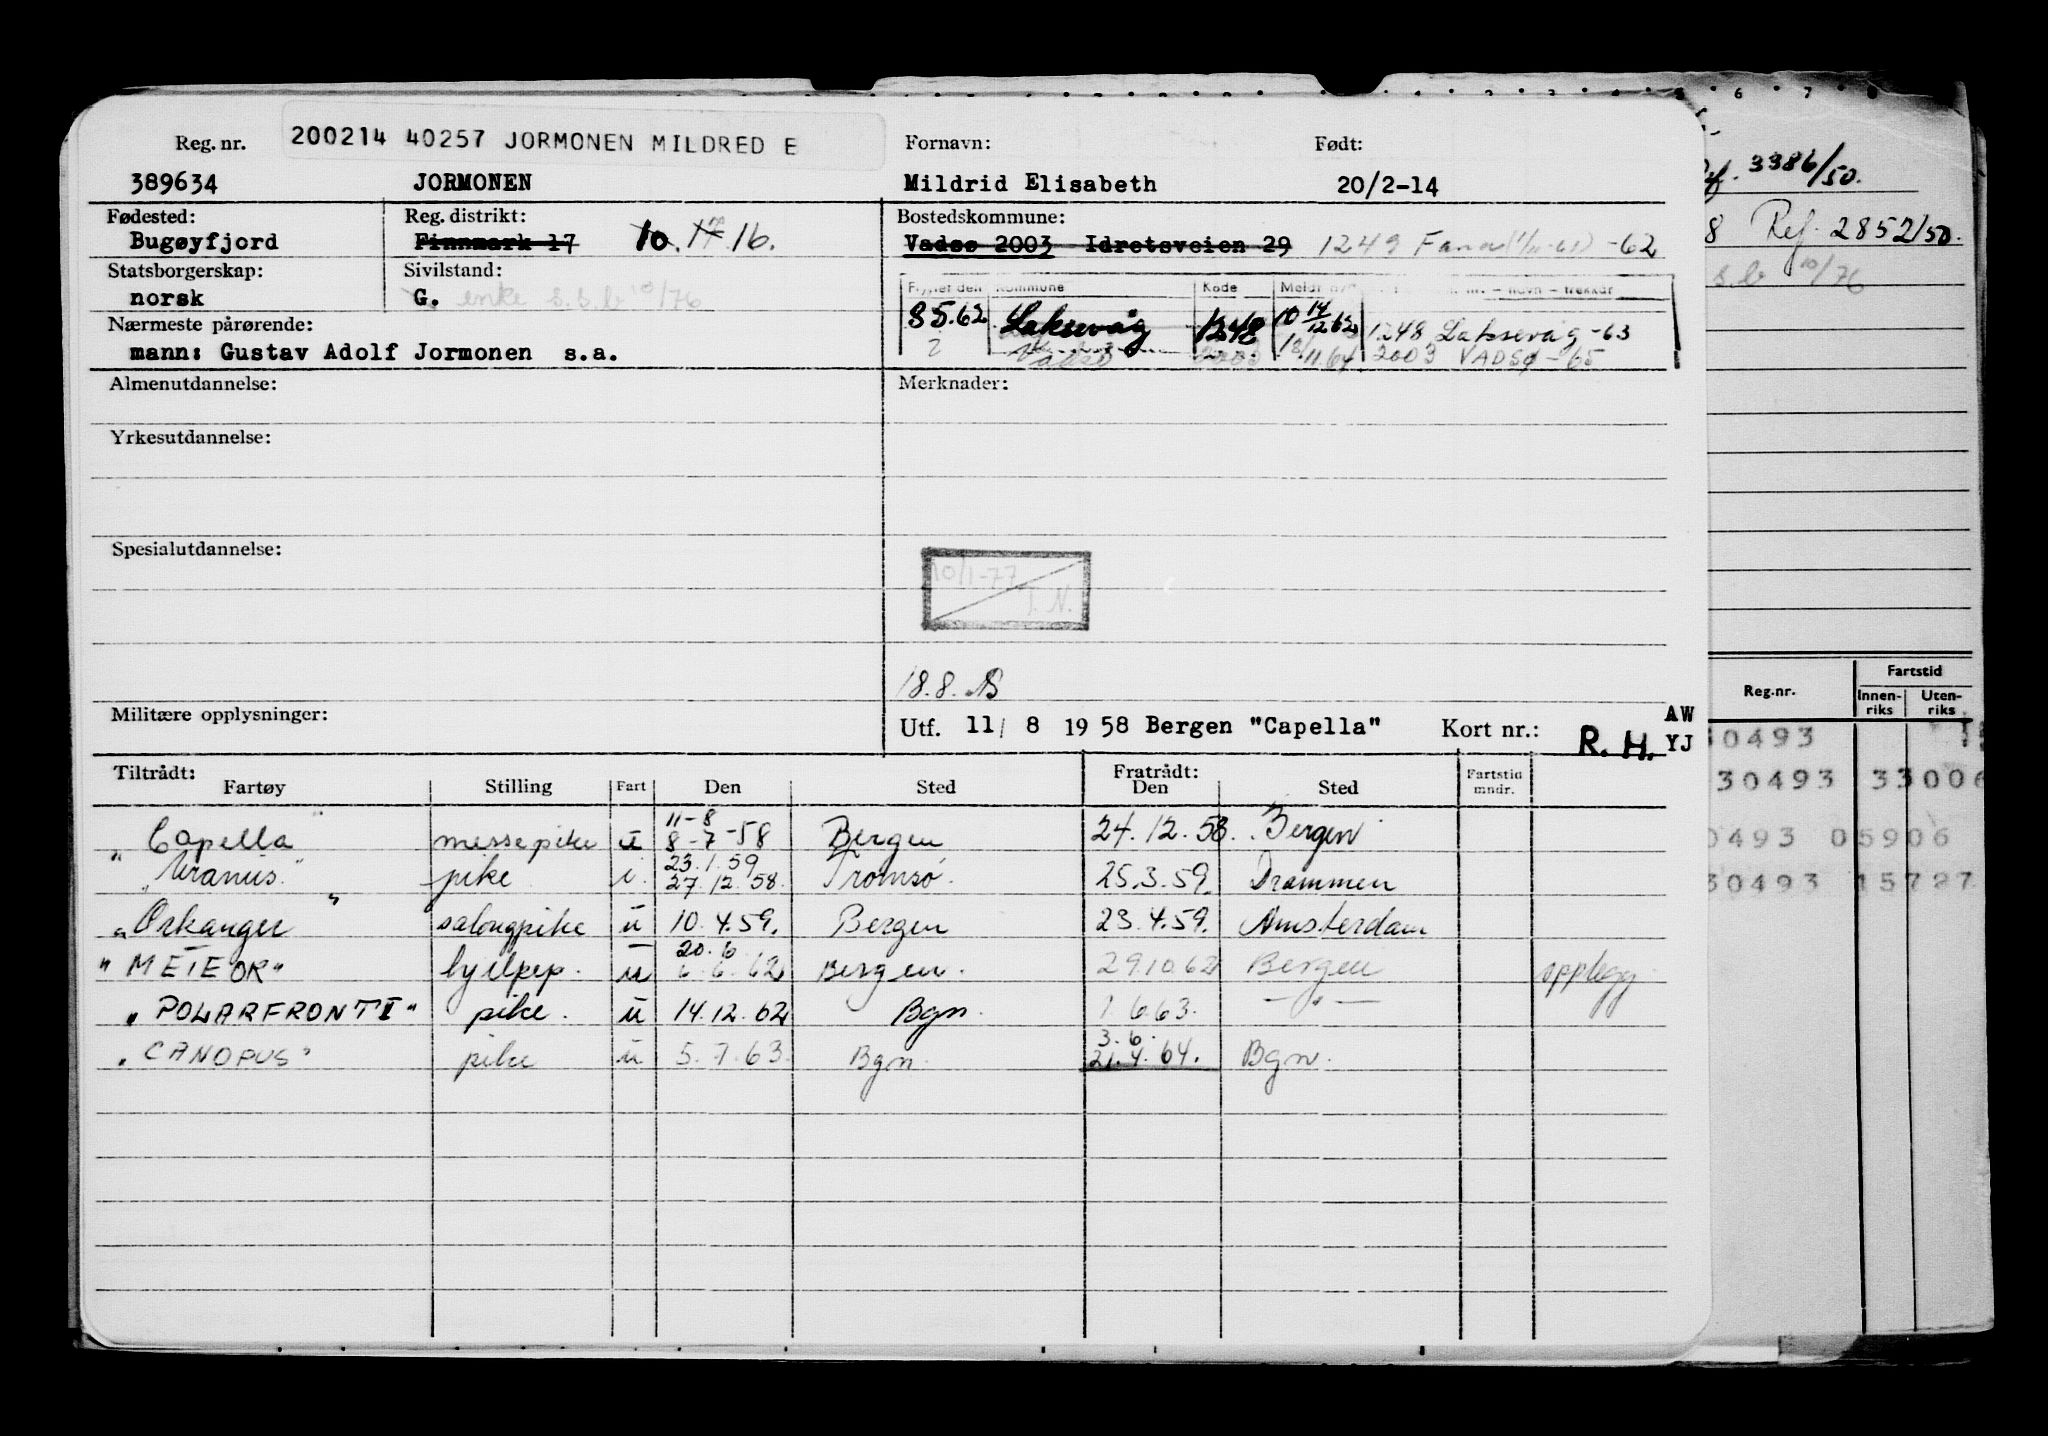 Reg. nr. 200214 40257 JORMONEN MILDRED E Fornavn: Født:
389634 JORMONEN Mildrid Elisabeth 20/2-14
Fødested: Reg. distrikt: Bostedskommune:
Bugøyfjord Finnmark 17 10. 17 16. Vadsø 2003 Idretsveien 29 1249 Fana -62
Statsborgerskap: Sivilstand:
norsk G. enke s.s.b 10/76
Flyttet den Kommune Kode
8 5.62 Laksevåg 1248 10 14/12 62 1248 Laksevåg -63
Nærmeste pårørende:
mann: Gustav Adolf Jormonen s.a.
? Vadsø 2003 18/11.64 2003 VADSØ -65
Almenutdannelse: Merknader:
Yrkesutdannelse:
Spesialutdannelse:
10/1-77
T. N.
18.8.
Militære opplysninger: Utf. 11/ 8 1958 Bergen "Capella" Kort nr.: R. H. AW
YJ
Tiltrådt: Fratrådt:
Fartøy Stilling Fart Den Sted Den Sted Fartstid mndr.
11-8
"Capella" messepike u 8-7-58 Bergen 24.12.58. Bergen
23.1.59
"Uranus" pike i 27.12.58. Tromsø. 25.3.59. Drammen
"Orkanger" salongpike u 10.4.59. Bergen 23.4.59. Amsterdam
20.6
"METEOR" hjelpep. u 6.6.62 Bergen. 29.10.62 Bergen opplegg
"POLARFRONT I" pike. u 14.12.62 Bgn. 1.6.63. —"—
3.6.
"CANOPUS" pike u 5.7.63. Bgn. 21.4.64. Bgn.
6 7 8
Ref. 3386/50.
8 Ref. 2852/50.
s.b 10/76
Fartstid
Reg.nr. Innenriks Utenriks
30493
30493 33006
0493 05906
30493 15727